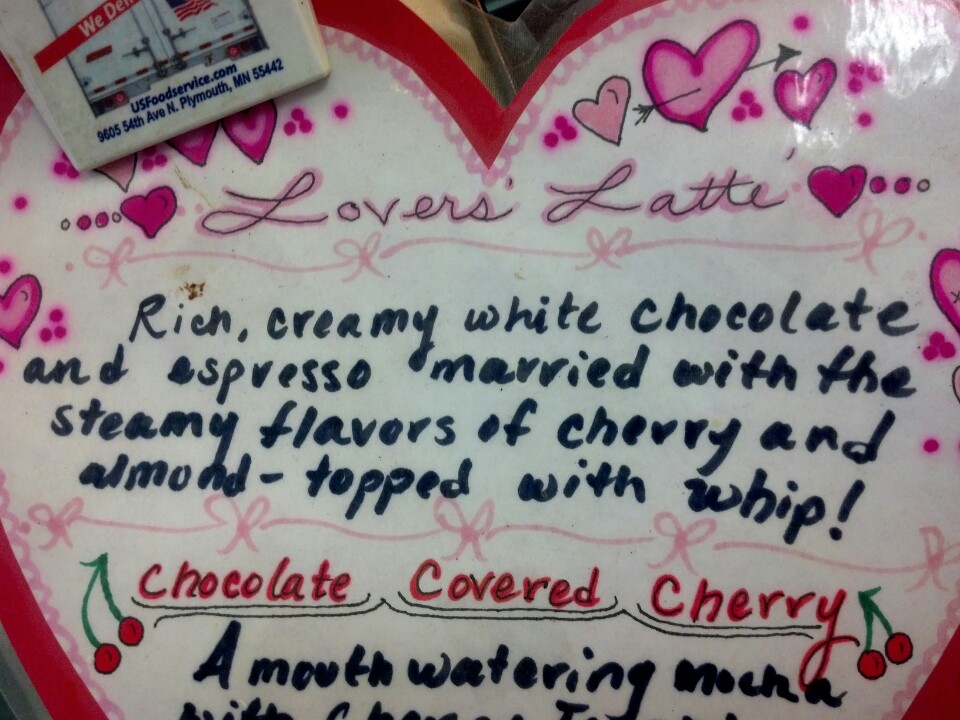 We Del
USFoodservice.com
9605 54th Ave N. Plymouth, MN 55442
Lovers' Latté
Rich, creamy white chocolate
and espresso married with the
steamy flavors of cherry and
almond - topped with whip!
Chocolate Covered Cherry
A mouth watering mocha
with